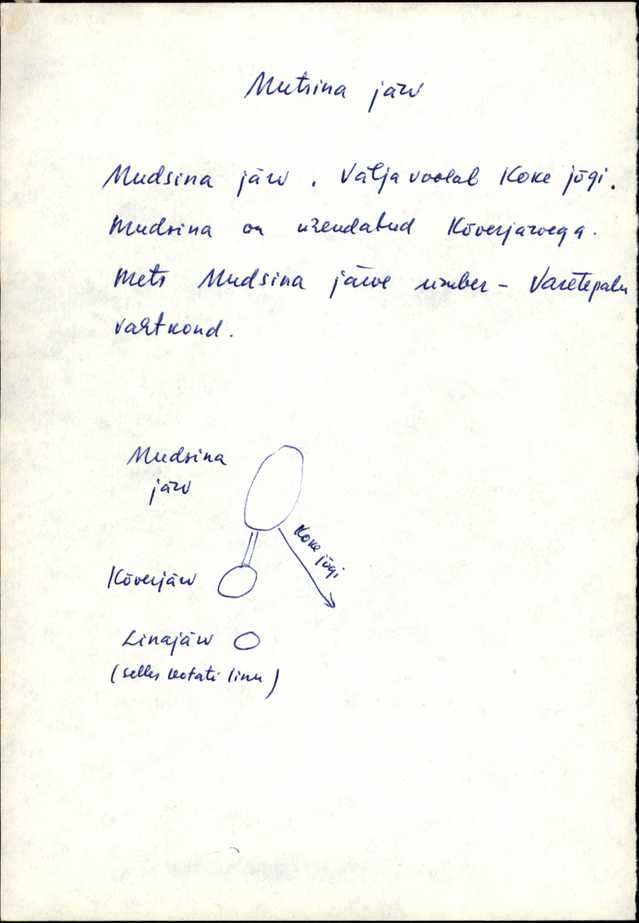 Mutsina järv
Mudsina järv. Välja voolab Koke jõgi.
Mudsina on ühendatud Kõverjärvega.
Mets Mudsina järve ümber - Varetepalu
vahtkond.
Mudsina
järv
Koke jõgi
Kõverjärv
Linajärv
(selles leotati linu)